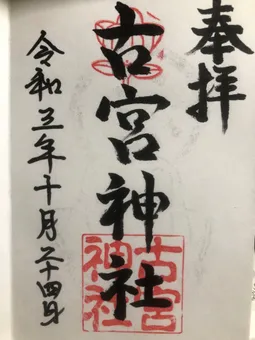 奉拝
古宮神社
令和三年十月二十四日
古宮
神社